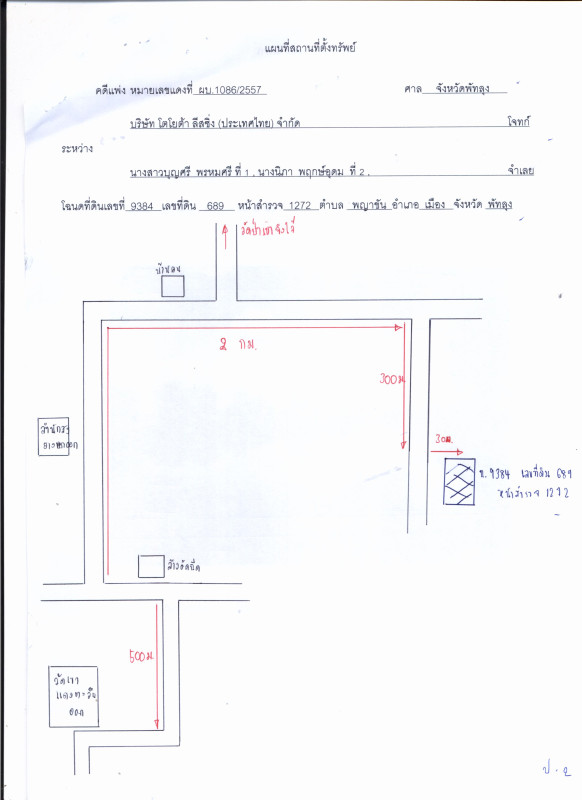 แผนที่สถานที่ตั้งทรัพย์
คดีแพ่ง หมายเลขแดงที่ ผบ.1086/2557 ศาล จังหวัดพัทลุง
บริษัท โตโยต้า ลีสซิ่ง (ประเทศไทย) จำกัด โจทก์
ระหว่าง
นางสาวบุญศรี พรหมศรี ที่ 1 , นางนิภา พฤกษ์อุดม ที่ 2 , จำเลย
โฉนดที่ดินเลขที่ 9384 เลขที่ดิน 689 หน้าสำรวจ 1272 ตำบล พญาขัน อำเภอ เมือง จังหวัด พัทลุง
บ้านคน
2 กม.
300 ม.
30ม.
ฉ. 9384 เลขที่ดิน 689
หน้าสำรวจ 1272
500 ม.
วัดเขา
ป.2